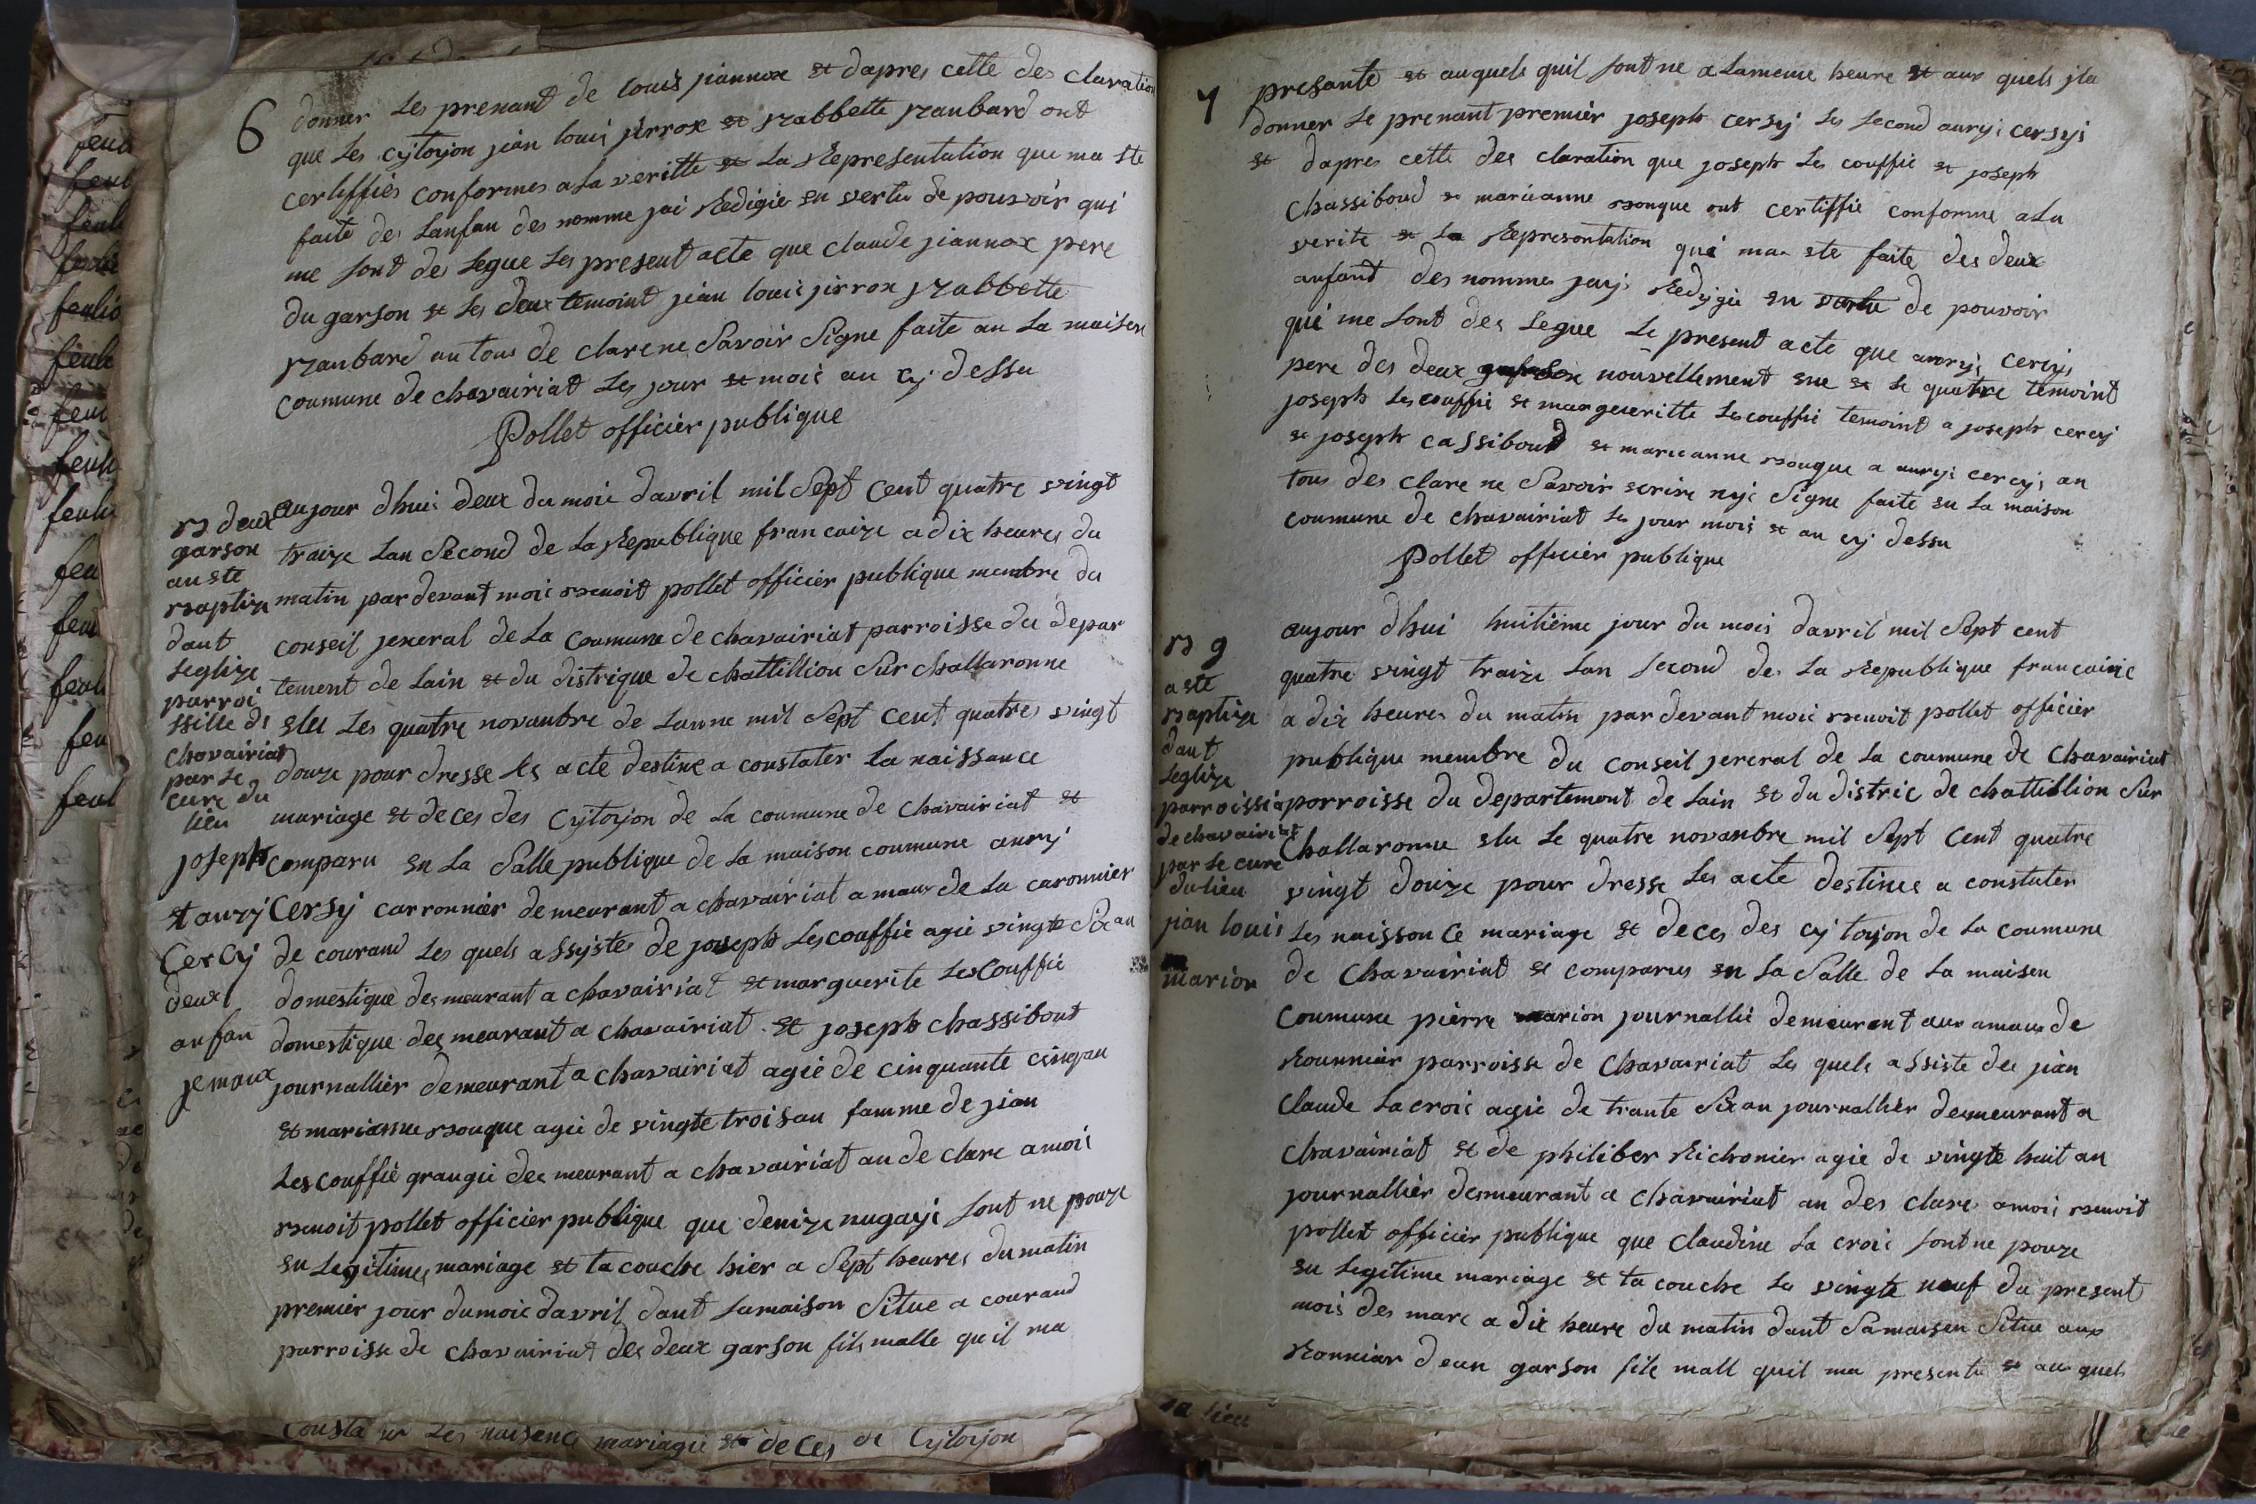 6
donner Les prenant de louis jiannox et dapres cette des claration
que Les cytoyon jian louis jirrox et Izabbette Izanbard ont
certiffiés conformes a la veritte et La Representation que ma ste
faite des Lanfan des nomme jai Redigie en vertu de pouvoir qui
me sont des Legue Les present acte que claude jiannox pere
du garson et Les deux temoint jian louis jirrox Izabbette
Izanbard an tous de clarene Savoir Signe faite an La maison
coumune de chavairiat Les jour et mois an cy dessu
Pollet officier publique
B deux
garson
an ste
Baptize
dant
Leglize
parroi
ssille de
Chavairiat
par Le
cure du
lieu
joseph
et auryi
Cercy
deux
anfan
jemaux
aujour dhui deux du mois davril mil Sept Cent quatre vingt
traize Lan Second de La Republique francaize a dix heures du
matin par devant moi Benoit pollet officier publique membre du
conseil jeneral de La coumune de chavairiat parroisse du depar
tement de Lain et du distrique de chattillion Sur challaronne
elu Les quatre novanbre de Lanne mil Sept Cent quatre vingt
douze pour dresse Les acte destine a constater La naissance
mariage et deces des Cytoyon de La coumune de chavairiat et
comparu en La Salle publique de La maison coumune auryi
Cersy carronnier demeurant a chavairiat a maux de La caronnier
de courand Les quels assystes de joseph Lescouffie agie vingte Six an
domestique des meurant a chavairiat et marguerite Les Couffie
domestique des meurant a chavairiat et joseph chassibout
journallier demeurant a chavairiat agie de cinquante cinq an
et marianne Bouque agie de vingte trois an famme de jian
Les couffie grangie des meurant a chavairiat an de clare a moi
Benoit pollet officier publique que denize nugayi sont ne pouze
en Legitimes mariage et ta couche hier a Sept heures du matin
premier jour du mois davril dant La maison Situe a courand
parroisse de chavairiat des deux garson fils malle qu il ma
Consta er Les naisence mariagie et de ces de Cytoyon
7
presante et auquels quil sont ne a La meme heure et aux quels jla
donner Le prenant premier joseph cersy Les Second auryi cersyi
et dapres cette des claration que joseph Les couffie et joseph
Chassiboud et marieanne Bouque ont certiffie conforme a La
verite et La Representation qui ma ste faite des deux
anfant des nommes jayi Redigie en vertu de pouvoir
qui me sont des Legue Le present acte que auryi cercyi
pere des deux nouvellement sne et Le quatre temoint
joseph Les couffie et margueritte Les couffie temoint a joseph cercy
et joseph cassiboud et marieanne Bouque a auryi cercyi an
tous des clare ne Savoir ecrire nyi Signe faite en La maison
coumune de chavairiat Les jour mois et an cy dessu
Pollet officier publique
B g
a ste
Baptize
dant
Leglize
parroissia
de chavairiat
par Le cure
du lieu
jian louis
marion
aujour dhui huitieme jour du mois davril mil Sept cent
quatre vingt traize Lan Second de La Republique francaise
a dix heures du matin par devant moi Benoit pollet officier
publique membre du conseil jereral de La coumune de Chavairiat
porroisse du departemont de Lain et du distric de chattillion Sur
Challaronne elu Le quatre novanbre mil Sept Cent quatre
vingt douze pour dresse Les acte destines a constater
Les naissonce mariage et deces des cytoyon de La coumune
de Chavairiat et comparus en La Salle de La maison
coumune pierre marion journallie demeurant aux amaux de
Rounnier parroisse de Chavairiat Les quels assiste des jian
claude La croi agie de trante Six an journallier demeurant a
chavairiat et de philiber Richonier agie de vingte huit an
journallier demeurant a chavairiat an des clare amoi Benoit
pollet officier publique que claudine La croi sont ne pouze
en Legitime mariage et ta couche La vingte neuf du present
mois des mars a dix heure du matin dant Sa maison Situe aux
Ronnier deun garson fils mall quil ma presente et aux quels